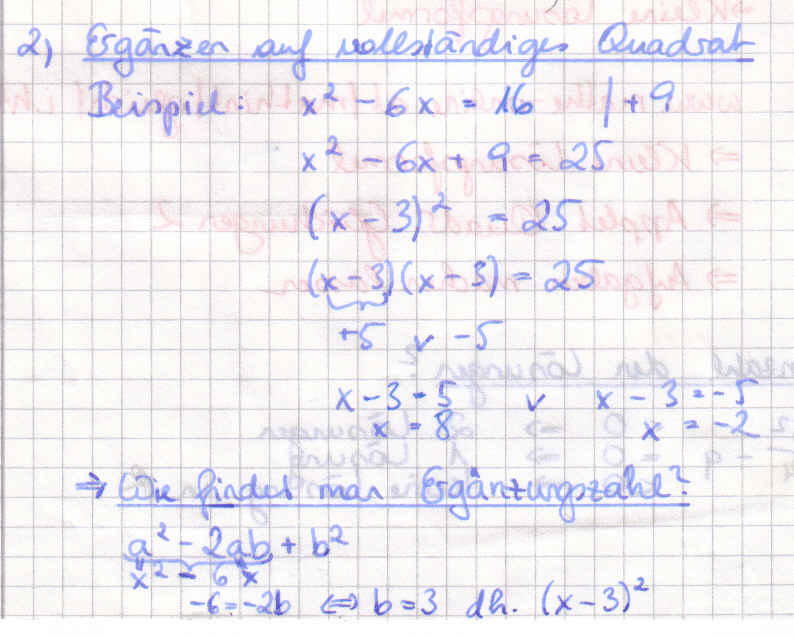 2) Ergänzen auf vollständiges Quadrat
Beispiel: x² - 6x = 16 | +9
x² - 6x + 9 = 25
(x - 3)² = 25
(x - 3)(x - 3) = 25
+5 v -5
x - 3 = 5 v x - 3 = -5
x = 8 x = -2
⇒ Wie findet man Ergänzungszahl?
a² - 2ab + b²
x² - 6x
-6 = -2b ⇔ b = 3 dh. (x - 3)²